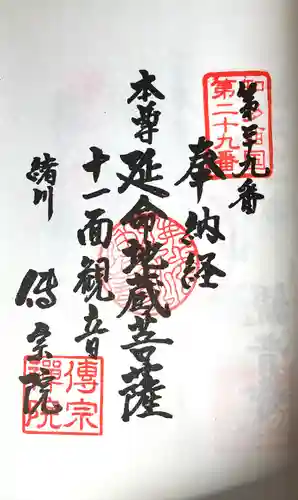 第二十九番
奉納経
本尊
延命地蔵菩薩
十一面観音
緒川
傳宗院
第二十九番
傳宗
禪院